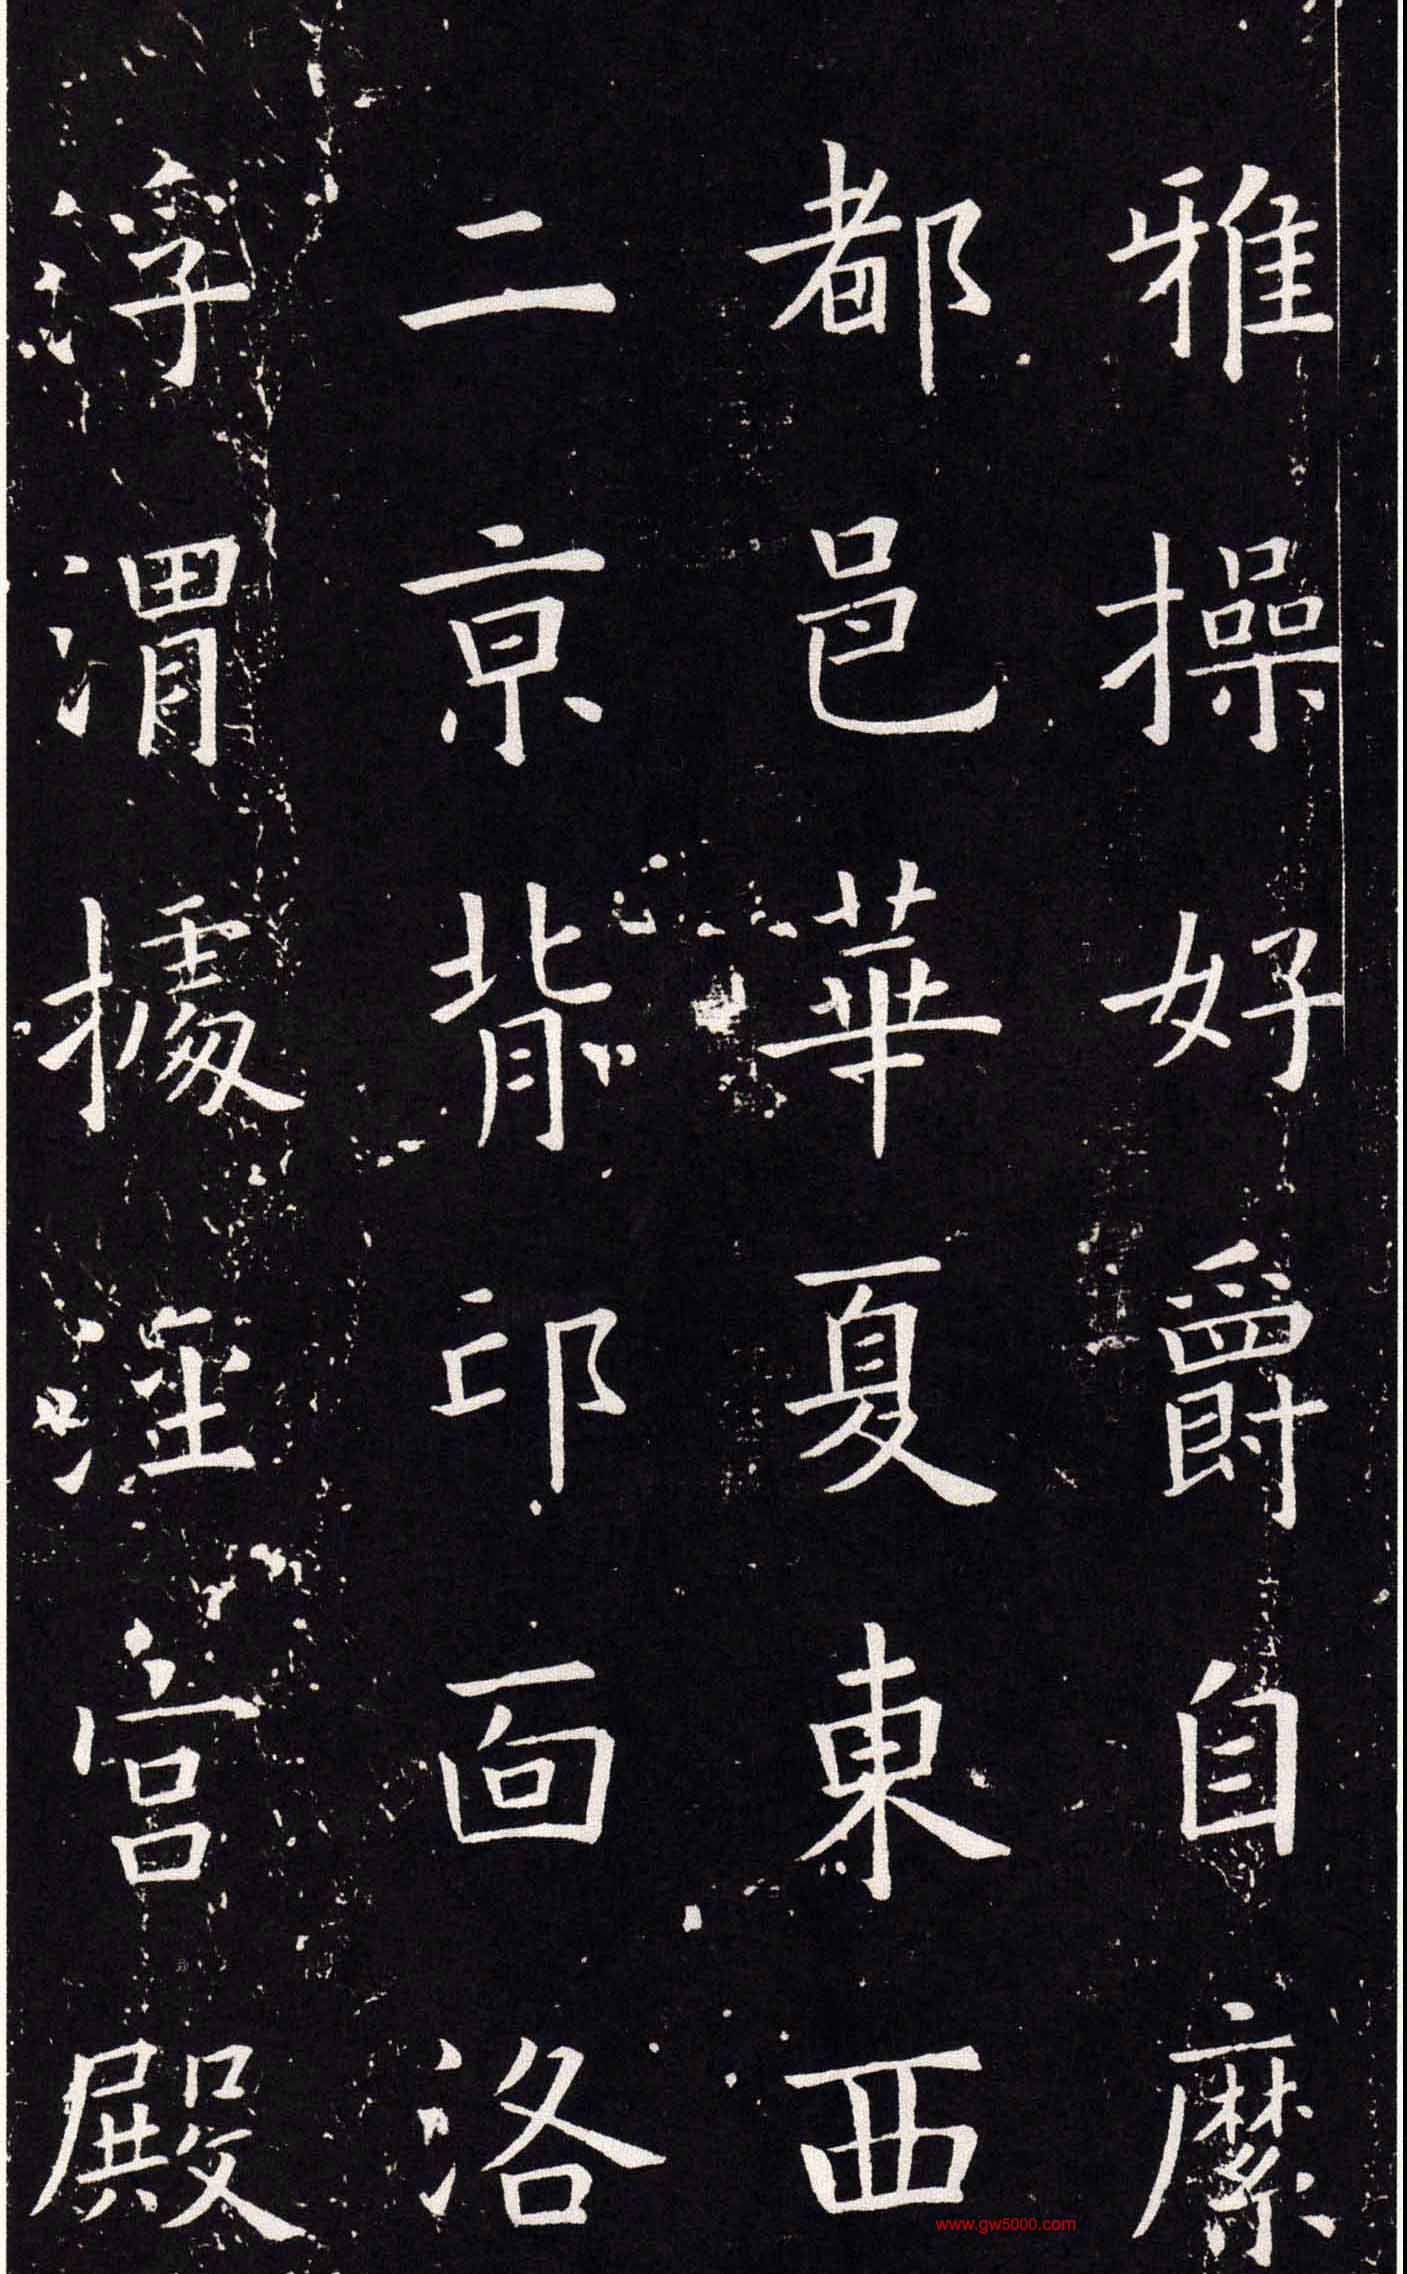 雅操好爵自縻
都邑華夏東西
二京背邙面洛
浮渭據涇宮殿
www.gw5000.com